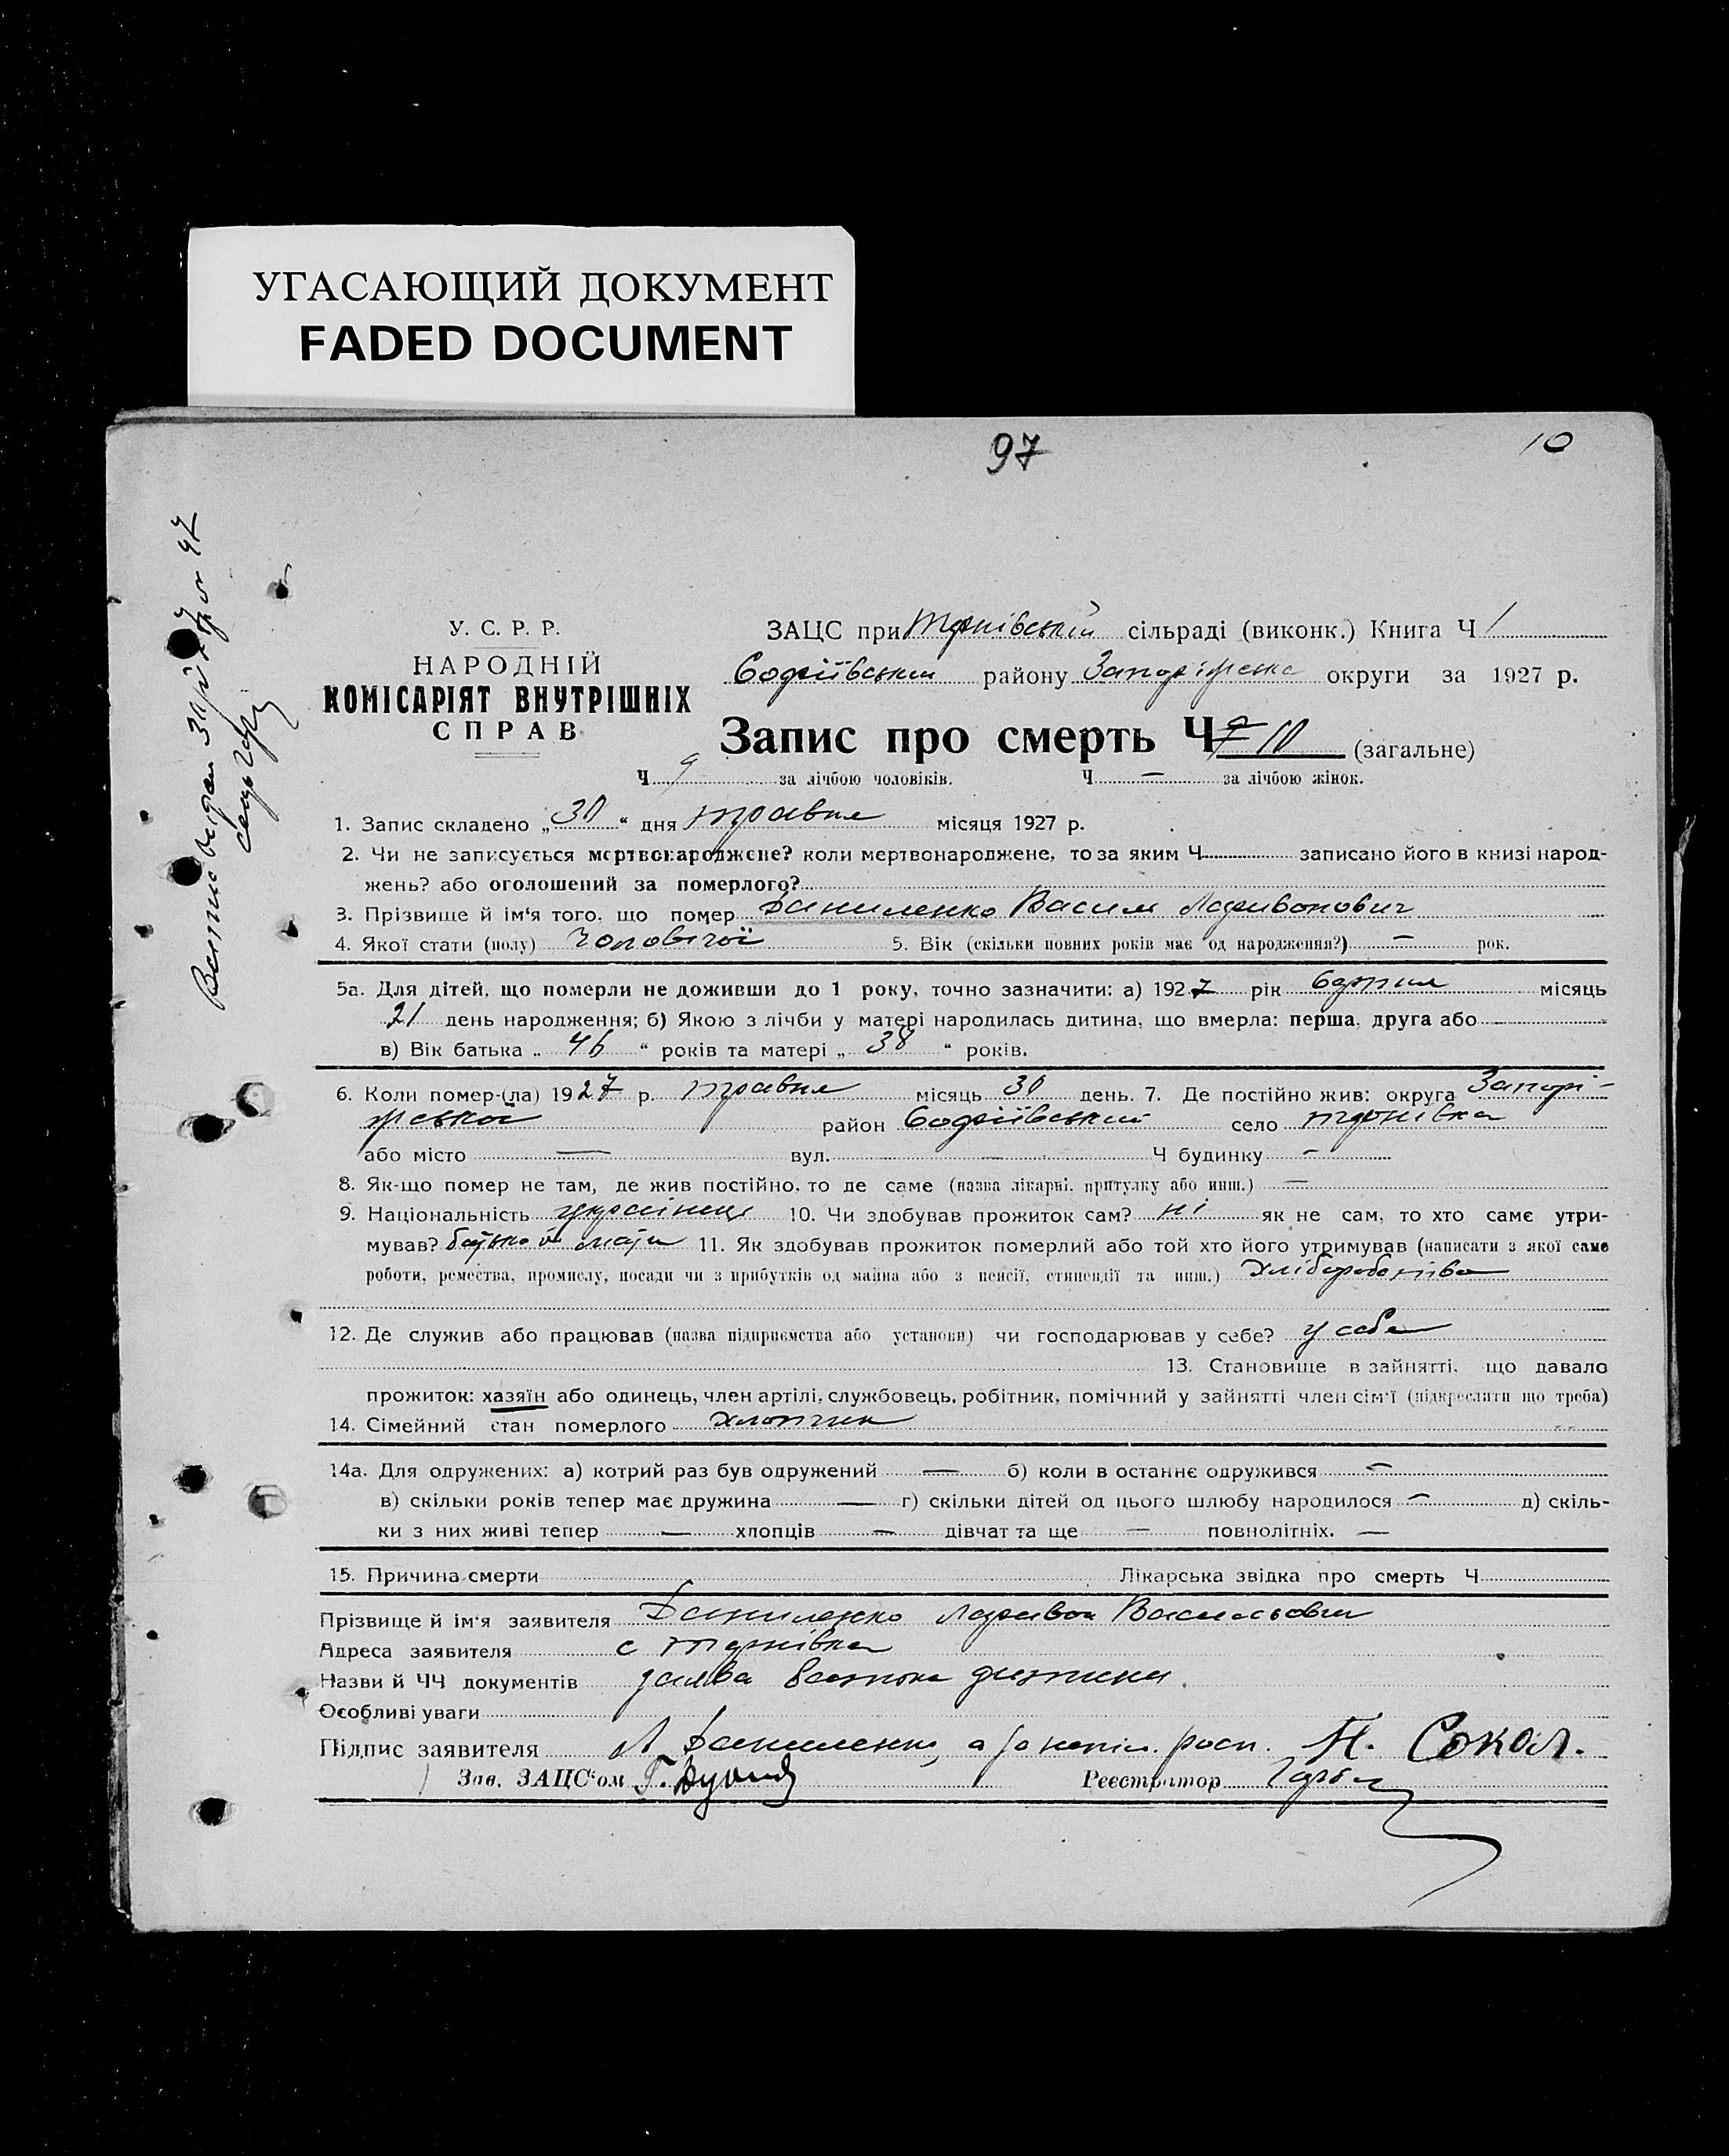 УГАСАЮЩИЙ ДОКУМЕНТ
FADED DOCUMENT
97
10
У. С. Р. Р.
НАРОДНІЙ
КОМІСАРІЯТ ВНУТРІШНІХ
СПРАВ
ЗАЦС при Тернівській сільраді (виконк.) Книга Ч 1
Софіївський району Запоріжська округи за 1927 р.
Запис про смерть Ч 10 (загальне)
Ч 9 за лічбою чоловіків. Ч — за лічбою жінок.
1. Запис складено „30“ дня травня місяця 1927 р.
2. Чи не записується мертвонароджене? коли мертвонароджене, то за яким Ч записано його в книзі народ-
жень? або оголошений за померлого?
3. Прізвище й ім‘я того, що помер Даниленко Василь Ларивонович
4. Якої стати (полу) Чоловічої 5. Вік (скільки повних років має од народження?) — рок.
5а. Для дітей, що померли не доживши до 1 року, точно зазначити: а) 1927 рік серпня місяць
21 день народження; б) Якою з лічби у матері народилась дитина, що вмерла: перша, друга або —
в) Вік батька „46“ років та матері „38“ років.
6. Коли помер-(ла) 1927 р. травня місяць 30 день. 7. Де постійно жив: округа Запорі-
жської район Софіївський село Тернівка
або місто — вул. — Ч будинку —
8. Як-що помер не там, де жив постійно, то де саме (назва лікарні, притулку або инш.) —
9. Національність українець 10. Чи здобував прожиток сам? ні як не сам, то хто саме утри-
мував? батько й мати 11. Як здобував прожиток померлий або той хто його утримував (написати з якої саме
роботи, ремества, промислу, посади чи з прибутків од майна або з пенсії, стипендії та инш.) Хліборобство
12. Де служив або працював (назва підприємства або установи) чи господарював у себе? у себе
13. Становище в зайнятті, що давало
прожиток: хазяїн або одинець, член артілі, службовець, робітник, помічний у зайнятті член сім‘ї (підкреслити що треба)
14. Сімейний стан померлого хлопчик
14а. Для одружених: а) котрий раз був одружений — б) коли в останнє одружився —
в) скільки років тепер має дружина — г) скільки дітей од цього шлюбу народилося — д) скіль-
ки з них живі тепер — хлопців — дівчат та ще — повнолітніх. —
15. Причина смерти Лікарська звідка про смерть Ч
Прізвище й ім‘я заявителя Даниленко Ларивон Васильович
Адреса заявителя с Тернівка
Назви й ЧЧ документів заява батька дитини.
Особливі уваги
Підпис заявителя Л Даниленко, а за непис. росп. Н. Сокол.
Зав. ЗАЦС‘ом Реєстратор